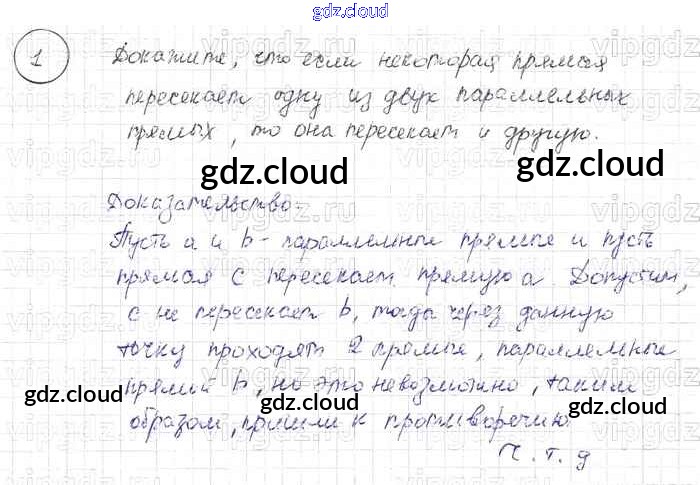 gdz.cloud
1 Докажите, что если некоторая прямая
пересекает одну из двух параллельных
прямых, то она пересекает и другую.
gdz.cloud gdz.cloud
Доказательство:
Пусть a и b - параллельные прямые и пусть
прямая c пересекает прямую a Допустим,
c не пересекает b, тогда через данную
точку проходят 2 прямые, параллельные
прямой b, но это невозможно, таким
gdz.cloud gdz.cloud gdz.cloud
образом, пришли к противоречию
ч.т.д
gdz.cloud